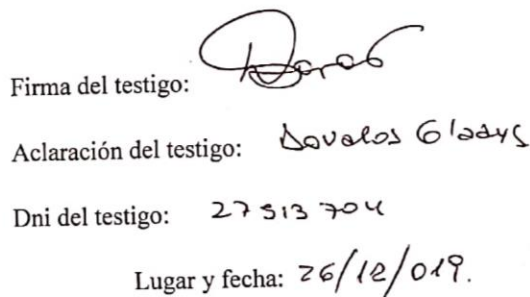 Firma del testigo:
Aclaración del testigo: Davalos Gladys
Dni del testigo: 27 513 704
Lugar y fecha: 26/12/019.